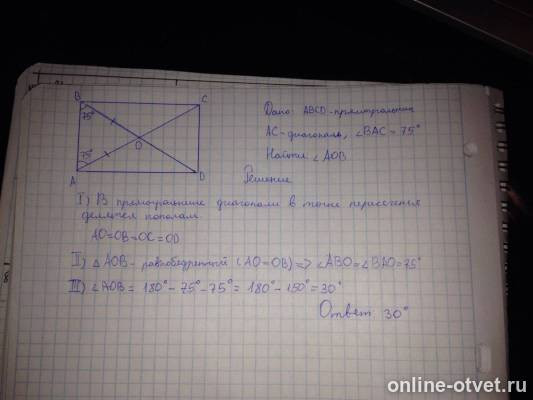 B
C
75°
O
75°
A
D
Дано: ABCD-прямоугольник
AC-диагональ, ∠BAC=75°
Найти: ∠AOB
Решение
I) В прямоугольнике диагонали в точке пересечения
делятся пополам.
AO=OB=OC=OD
II) △AOB- равнобедренный (AO=OB) => ∠ABO=∠BAO=75°
III) ∠AOB= 180°-75°-75°= 180°-150°=30°
Ответ 30°
8
online-otvet.ru